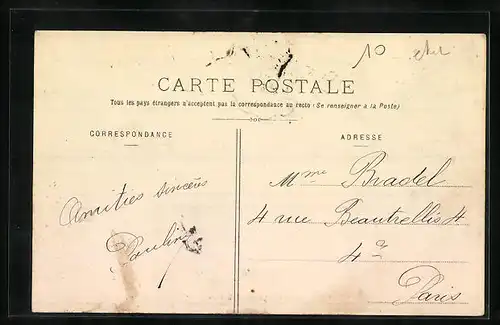 10
CARTE POSTALE
Tous les pays étrangers n'acceptent pas la correspondance au recto (Se renseigner à la Poste)
CORRESPONDANCE
Amitiés sincères
Pauline
ADRESSE
Mme Bradel
4 rue Beautrellis 4
4e
Paris